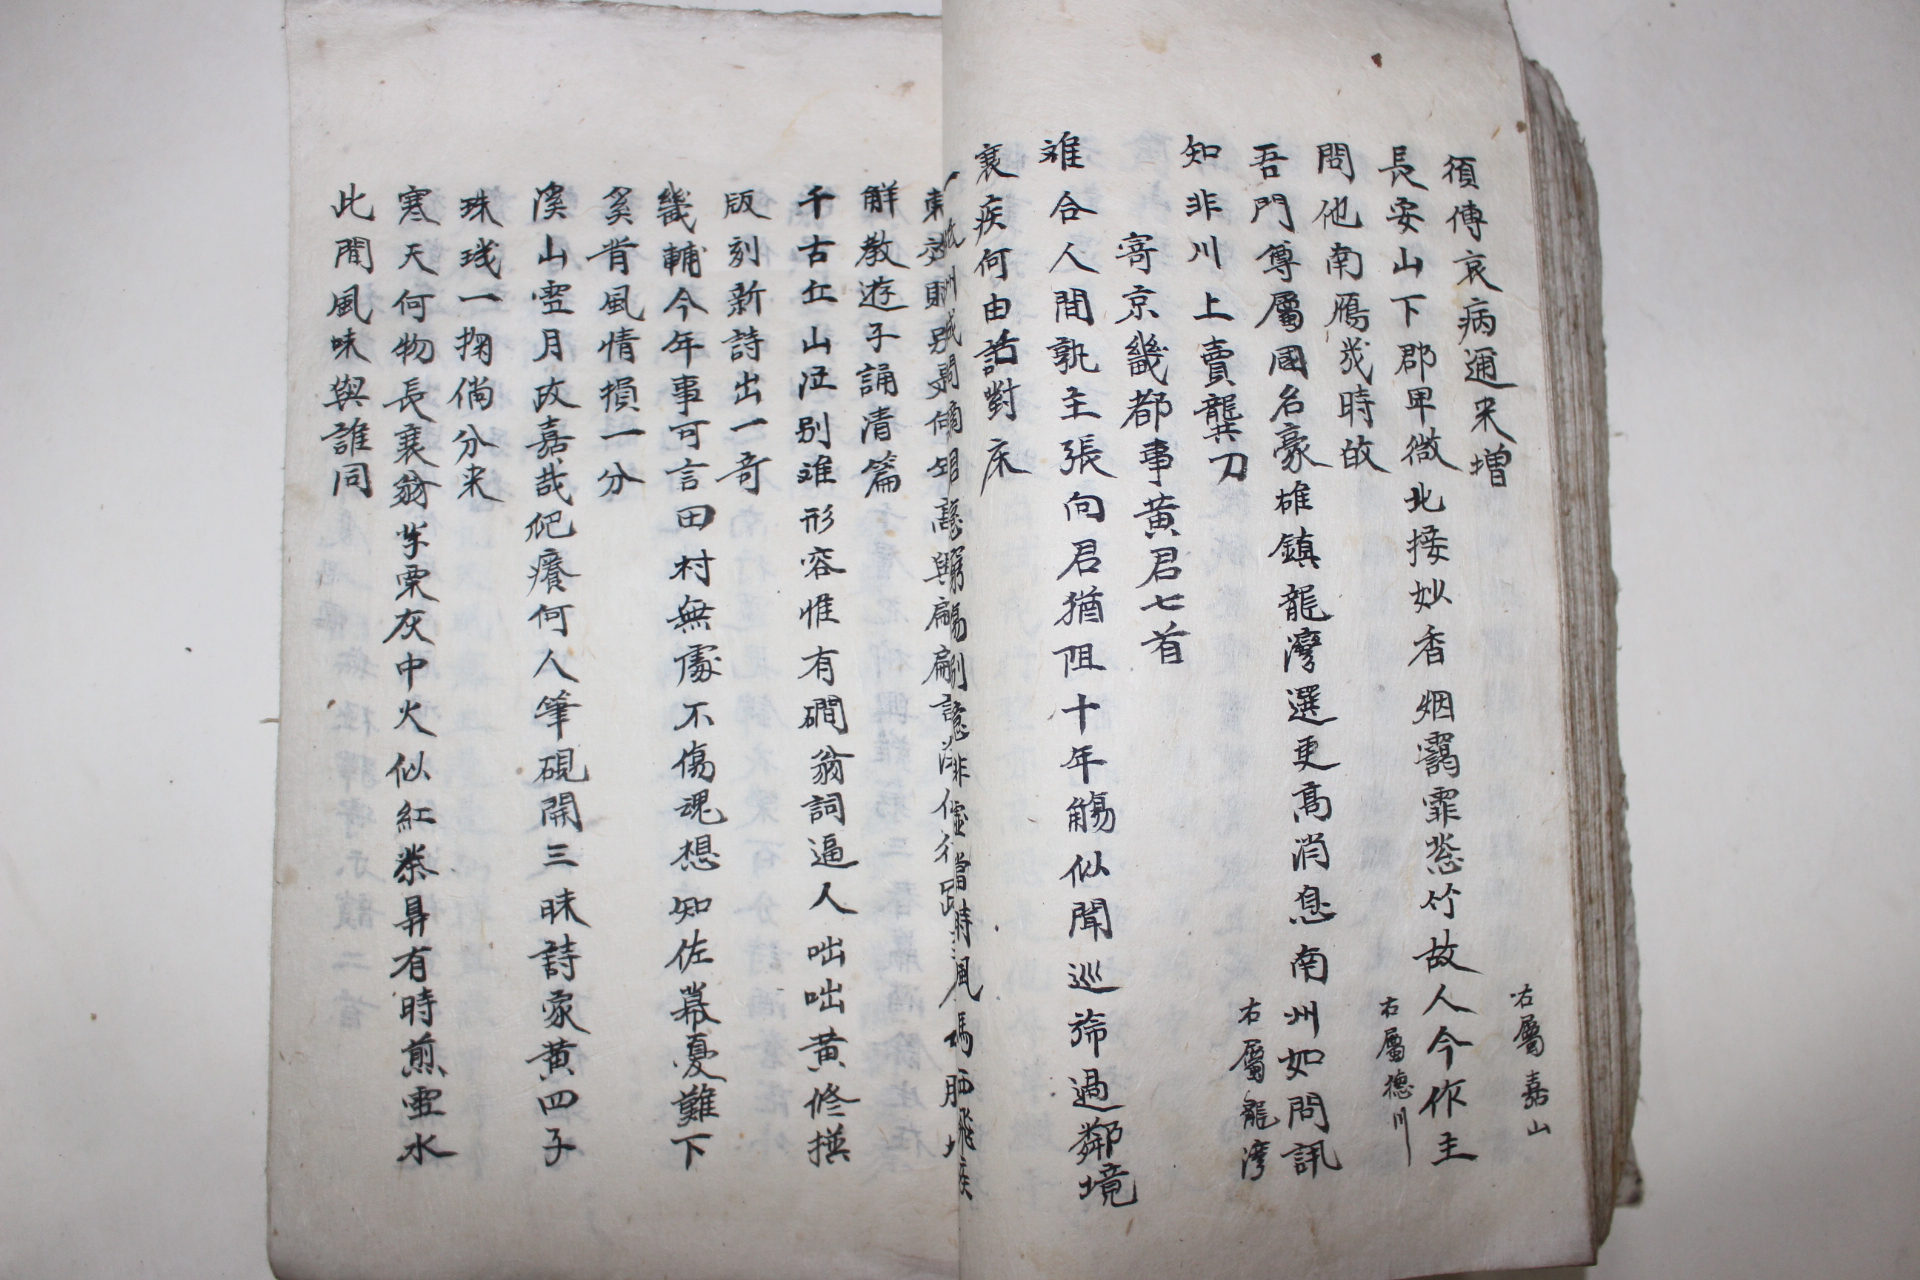 須傳哀病邇来增
右屬嘉山
長安山下郡卑微北接妙香烟靄霏慈竹故人今作主
問他南鴈幾時故
右屬德川
吾門尊屬國名豪雄鎮龍灣選更高消息南州如問訊
知非川上賣龔刀
右屬龍灣
寄京畿都事黃君七首
难合人間孰主張向君猶阻十年觴似聞巡斾過鄰境
衰疾何由話對床
解教遊子誦清篇
千古丘山泟别难形容惟有磵翁詞逼人咄咄黃修撰
版刻新詩出一奇
畿輔今年事可言田村無處不傷魂想知佐幕憂難下
奚背風情損一分
溪山雪月政嘉哉爬癢何人筆硯開三昧詩家黃四子
珠璣一掬倘分来
寒天何物長衰翁芋栗灰中火似紅茶鼎有時煎雪水
此間風味與誰同